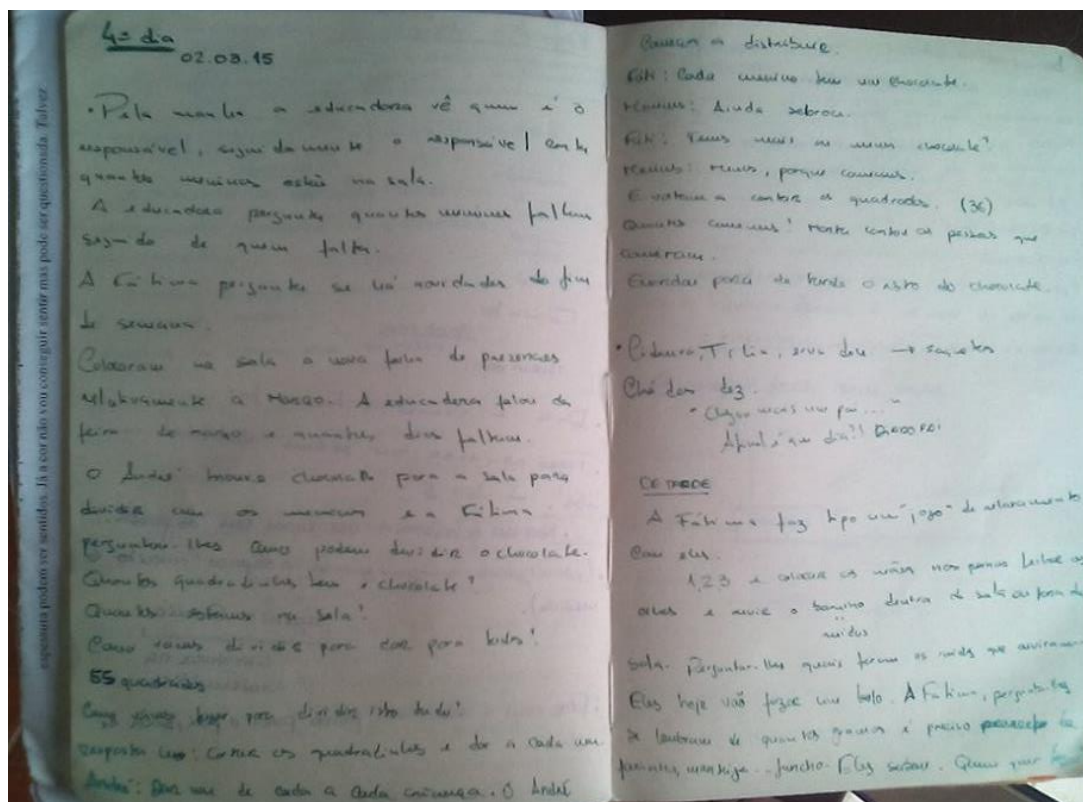 4º dia
02.03.15
• Pela manhã a educadora vê quem é o
responsável, seguidamente o responsável conta
quantos meninos estão na sala.
A educadora pergunta quantos meninos faltam
seguido de quem falta.
A Fátima pergunta se há novidades do fim
de semana.
Colocaram na sala a nova folha de presenças
relativamente a Março. A educadora falou da
feira de março e quantos dias faltam.
O André trouxe chocolate para a sala para
dividir com os meninos e a Fátima
perguntou-lhes como podem dividir o chocolate.
Quantos quadradinhos tem o chocolate?
Quantos estamos na sala?
Como vamos dividir para dar para todos?
55 quadrados
Como vamos fazer para dividir isto tudo?
resposta: Cortar os quadradinhos e dar a cada um
André: Dar um de cada a cada criança. O André
Começa a distribuir.
Cada menino tem um chocolate.
Meninos: Ainda sobrou.
Temos mais ou menos chocolate?
Meninos: Menos, porque comemos.
E voltam a contar os quadrados. (36)
Quantos comemos? contou as pessoas que
comeram.
Guardar para de tarde o resto do chocolate.
• Cidreira, Tília, erva doce → saquetas
Chá das dez.
"Chegou mais um pai..."
Afinal é que dia?!
DE TARDE
A Fátima faz tipo um "jogo" de relaxamento
com eles.
1,2,3 e colocar as mãos nas pernas fechar os
olhos e ouvir o dentro da sala ou fora da
ruídos
sala. Perguntar-lhes quais foram os ruídos que ouviram
Eles hoje vão fazer um bolo. A Fátima, pergunta-lhes
se lembram de quantos gramas é preciso
farinha, manteiga... Eles sabem. Quem quer
espessura podem ver sentidos. Já a cor não vou conseguir sentir mas pode ser questionada. Talvez